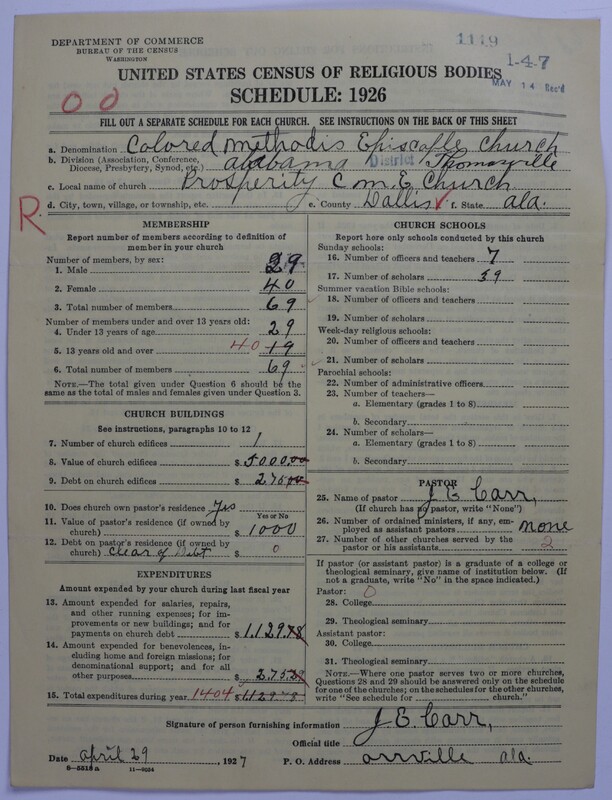 DEPARTMENT OF COMMERCE
BUREAU OF THE CENSUS
WASHINGTON
1119
1-4-7
MAY 14 Rec'd
UNITED STATES CENSUS OF RELIGIOUS BODIES
SCHEDULE: 1926
00
FILL OUT A SEPARATE SCHEDULE FOR EACH CHURCH. SEE INSTRUCTIONS ON THE BACK OF THIS SHEET
a. Denomination Colored methodis Episcaple church
b. Division (Association, Conference, Diocese, Presbytery, Synod, etc.) alabama District Thomasville
c. Local name of church Prosperity C m E Church
d. City, town, village, or township, etc. e. County Dallis f. State ala.
R.
MEMBERSHIP
Report number of members according to definition of
member in your church
Number of members, by sex:
1. Male 29
2. Female 40
3. Total number of members 69
Number of members under and over 13 years old:
4. Under 13 years of age 29
5. 13 years old and over 40 19
6. Total number of members 69
NOTE.—The total given under Question 6 should be the
same as the total of males and females given under Question 3.
CHURCH BUILDINGS
See instructions, paragraphs 10 to 12
7. Number of church edifices 1
8. Value of church edifices $ 5000,00
9. Debt on church edifices $ 275
10. Does church own pastor's residence yes
Yes or No
11. Value of pastor's residence (if owned by
church) $ 1000
12. Debt on pastor's residence (if owned by
church) clear of Debt $ 0
EXPENDITURES
Amount expended by your church during last fiscal year
13. Amount expended for salaries, repairs,
and other running expenses; for im-
provements or new buildings; and for
payments on church debt $ 1,129.78
14. Amount expended for benevolences,
including home and foreign missions; for
denominational support; and for all
other purposes $ 275
15. Total expenditures during year 1404 $ 1129.78
CHURCH SCHOOLS
Report here only schools conducted by this church
Sunday schools:
16. Number of officers and teachers 7
17. Number of scholars 39
Summer vacation Bible schools:
18. Number of officers and teachers
19. Number of scholars
Week-day religious schools:
20. Number of officers and teachers
21. Number of scholars
Parochial schools:
22. Number of administrative officers
23. Number of teachers—
a. Elementary (grades 1 to 8)
b. Secondary
24. Number of scholars—
a. Elementary (grades 1 to 8)
b. Secondary
PASTOR
25. Name of pastor J E Carr,
(If church has no pastor, write "None")
26. Number of ordained ministers, if any, em-
ployed as assistant pastors none
27. Number of other churches served by the
pastor or his assistants 2
If pastor (or assistant pastor) is a graduate of a college or
theological seminary, give name of institution below. (If
not a graduate, write "No" in the space indicated.)
Pastor: 0
28. College
29. Theological seminary
Assistant pastor:
30. College
31. Theological seminary
NOTE.—Where one pastor serves two or more churches,
Questions 28 and 29 should be answered only on the schedule
for one of the churches; on the schedules for the other churches,
write "See schedule for church."
Signature of person furnishing information J. E. Carr,
Official title
Date april 29, 1927 P. O. Address orrville ala.
8-5518 a 11-9264